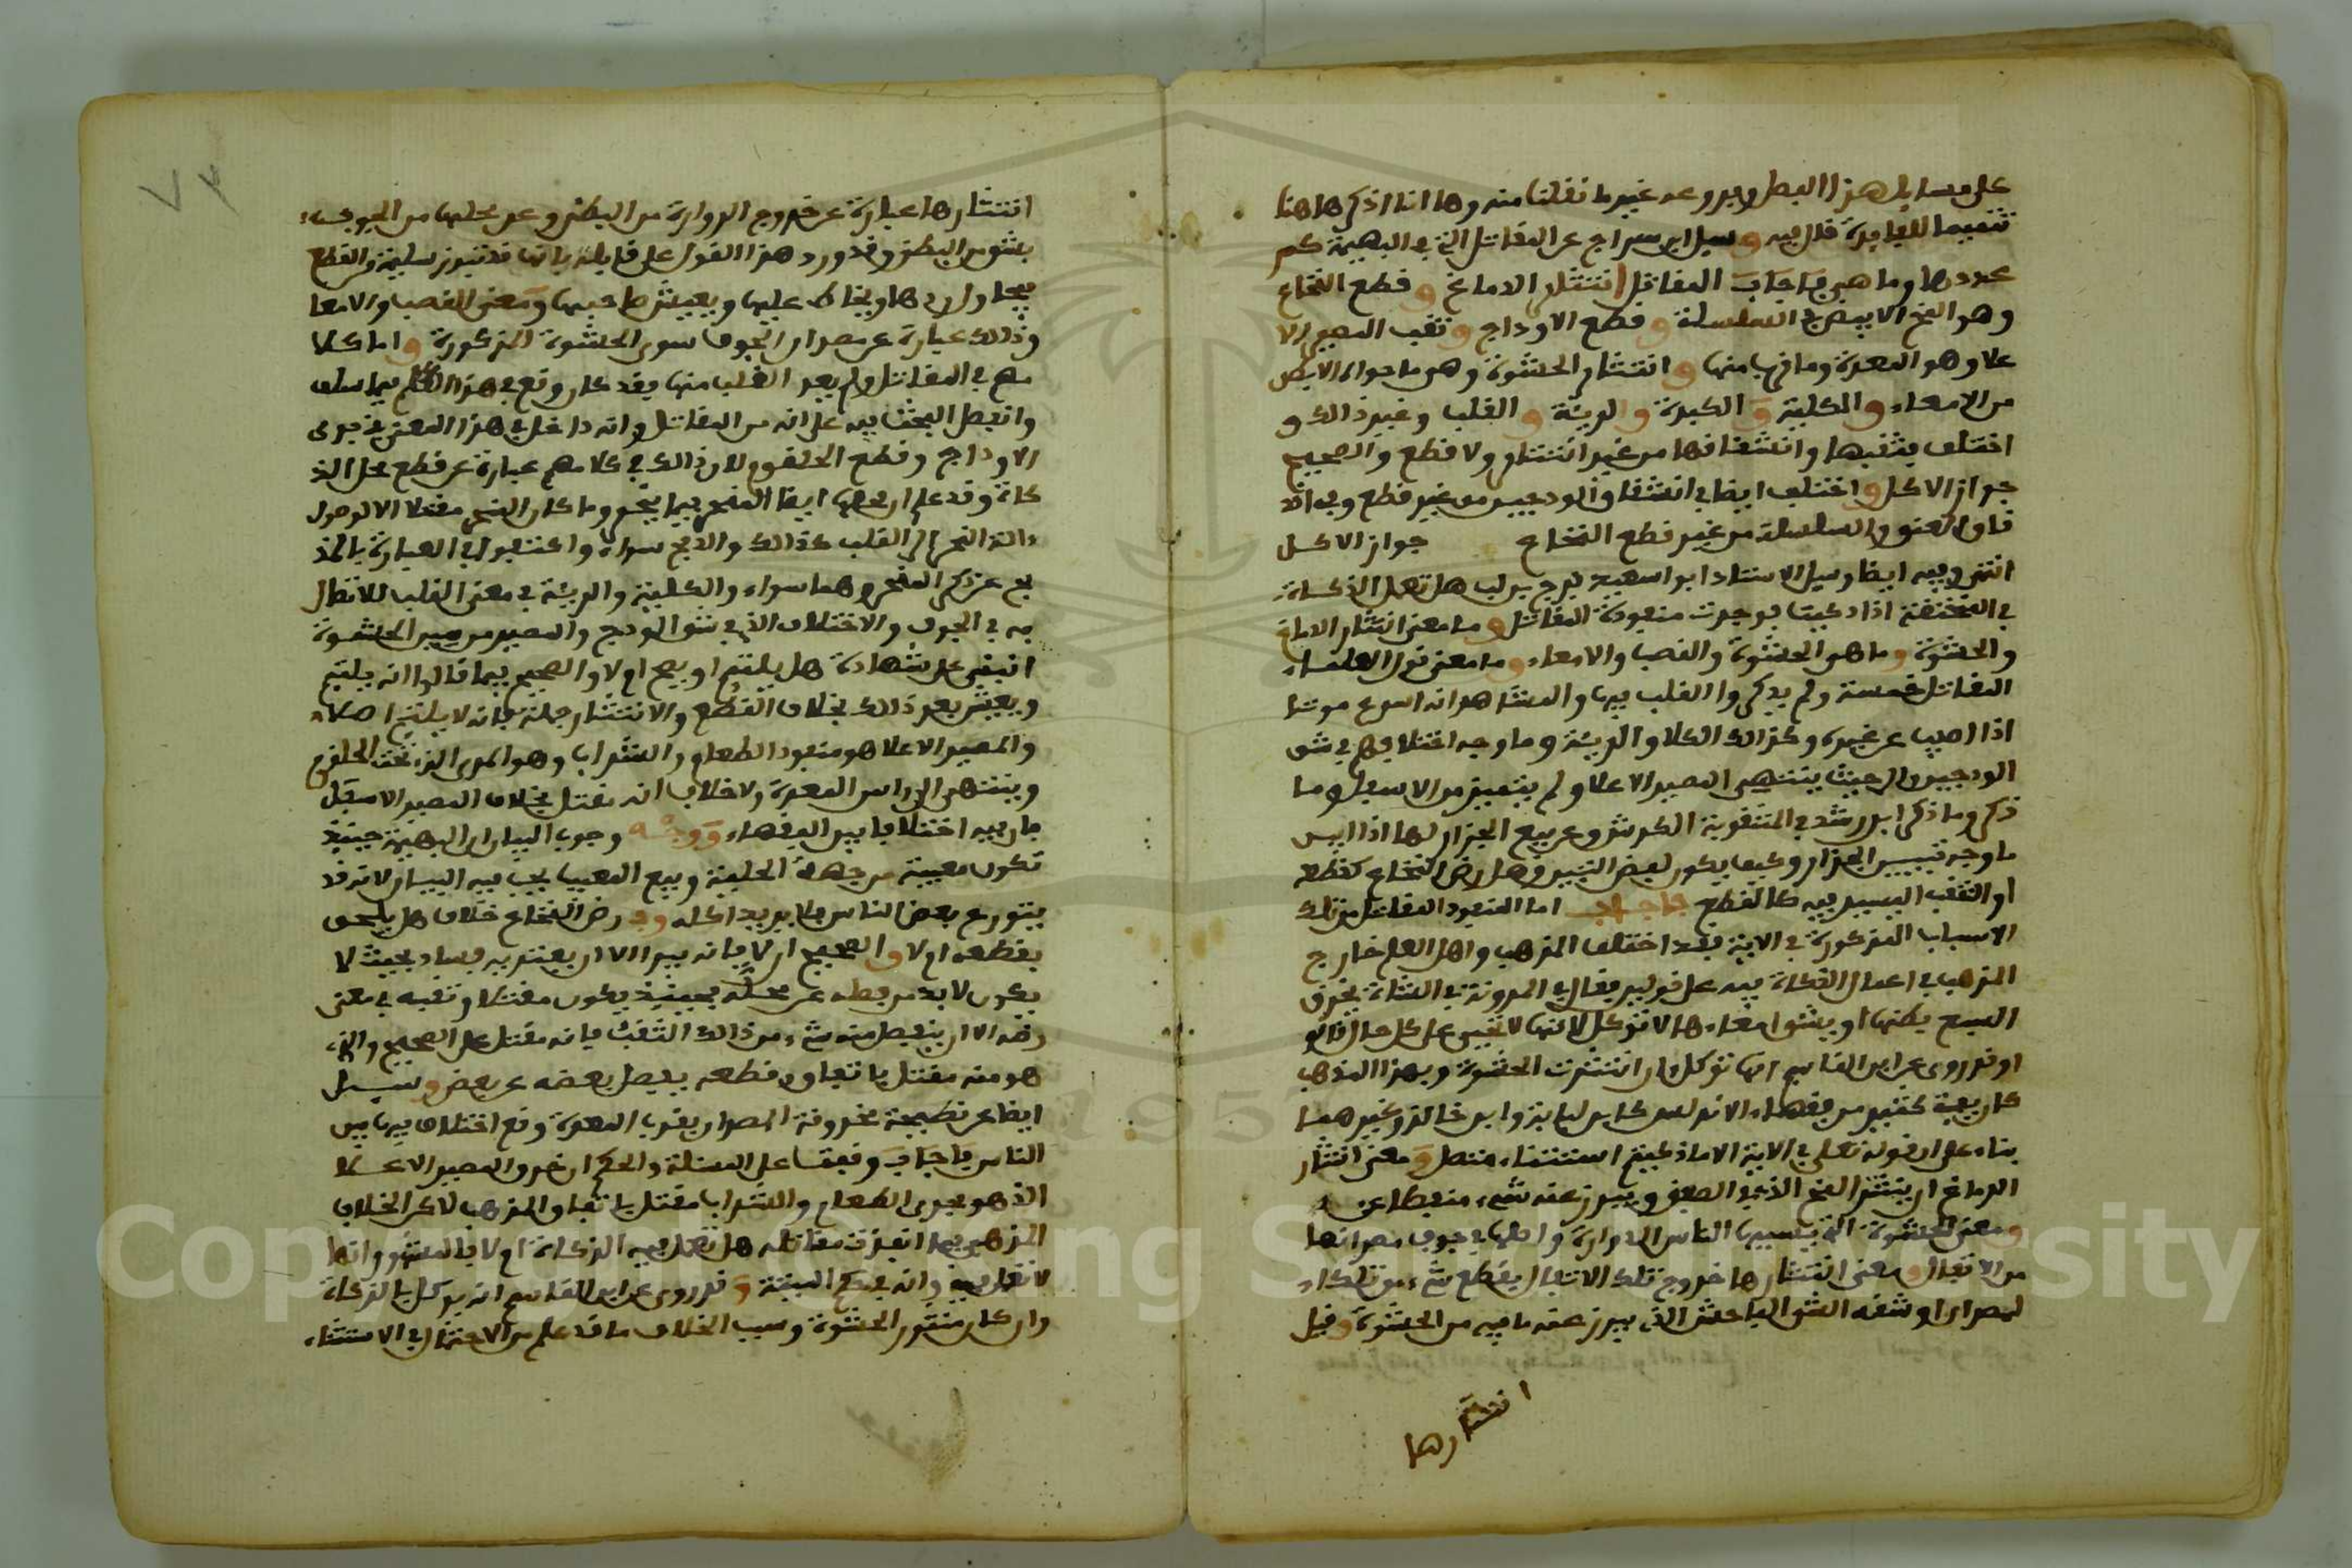 على مسايل هذا الفصل وفروعه غير ما نقلنا منه وها انا اذكرها هنا
تتميما للفايدة قال فيه وسيل ابن سراج عن المقاتل التي في البهيمة كم
عددها وما هي فاجاب المقاتل انتثار الدماغ وقطع النخاع
وهو المخ الابيض في السلسلة وقطع الاوداج وثقب المصير الا
علا وهو المعدة وما قرب منها وانتثار الحشوة وهي ما حواه الابيض
من الامعاء والكلية والكبدة والرية والقلب وغير ذالك و
اختلف بثقبها وانشقاقها من غير انتثار ولا قطع والصحيح
جواز الاكل واختلف ايضا في انشقاق الودجين من غير قطع وفي اند
قاق العنق والسلسلة من غير قطع النخاع جواز الاكل
انتهى وفيه ايضا وسيل الاستاذ ابو سعيد فرج بن لب هل تعمل الذكاة
في المنخنقة اذا ذكيت فوجدت منفوذة المقاتل وما معنى انتثار الدماغ
والحشوة وما هو الحشوة والقصب والامعاء وما معنى قول العلماء
المقاتل خمسة ولم يذكروا القلب فيها والمشاهد انه اسرع موتا
اذا اصيب عن غيره وكذالك الكلا والرية وما وجه اختلافهم في شق
الودجين والى حيث ينتهي المصير الاعلا ولم يتميز من الاسفل وما
ذكر وما ذكر ابن رشد في المثقوبة الكرش وعن بيع الجزار لها اذا لبس
ما وجه تبيين الجزار وكيف يكون لبعض التبين وهل رض النخاع كقطعه
او الثقب اليسير فيه كالقطع فاجاب اما المنفوذ المقاتل من تلك
الاسباب المذكورة في الاية فقد اختلف المذهب واهل العلم خارج
المذهب في اعمال الذكاة فيه على قولين فقال في المدونة في الشاة يخرق
السبع بطنها او يشق امعاءها لا توكل لانها لا تحيى على كل حال قالو
او قد روى عن ابن القاسم انها توكل وان انتثرت الحشوة وبهذا المذهب
كان يعمل كثير من فقهاء الاندلس كابن لبابة وابن خالد وغيرهما
بناء على ان قوله تعلى في الاية الا ما ذكيتم استثناء متصل ومعنى انتثار
الدماغ ان ينتثر المخ الذي في الصفن ويبرز عنه شيء منفصلا عنه
ومعنى الحشوة التي يسميها الناس الدوارة واصلها في جوف مصرانها
من الاثقال ومعنى انتثارها خروج تلك الاثقال بقطع شيء من تلك ا
لمصران او شقه الشق الفاحش الذي يبرز عنه ما فيه من الحشوة وقيل
انتثارها
انتثارها عبارة عن خروج الدوارة من البطن وعن محلها من الجوف
بشق البطن وقد ورد هذا القول على قايله بانها قد تبرز سليمة من القطع
فيحاول ردها ويخاط عليها ويعيش صاحبها ومعنى القصب والامعا
وذالك عبارة عن مصران الجوف سوى الحشوة المذكورة واما كلا
مهم في المقاتل ولم يعد القلب منها فقد كان وقع في هذا الكلام فيما سلف
وانفصل البحث فيه على انه من المقاتل وانه داخل في هذا المعنى في فري
الاوداج وقطع الحلقوم لان ذالك في كلامهم عبارة عن قطع محل الذ
كاة وقد علم ان محلها ايضا المنحر فيما ينحر وما كان النحر مقتلا الا لوصول
الة النحر الى القلب كذالك والذبح سواء واكتفوا في العبارة بالذ
بح عن ذكر المنحر وهما سواء والكلية والرية في معنى القلب للاتصال
به في الجوف والاختلاف الذي في شق الودج والمصير من غير الحشوة
انبنى على شهادة هل يلتئم او يصح ام لا والصحيح فيما قالوا انه يلتئم
ويعيش بعد ذالك بخلاف القطع والانتثار جملة فانه لا يلتئم اصلا
والمصير الاعلا هو منفوذ الطعام والشراب وهو المرى الذي تحت الحلقوم
وينتهي الى راس المعدة ولا خلاف انه مقتل بخلاف المصير الاسفل
فان فيه اختلافا بين الفقهاء ووجه وجوب البيان ان البهيمة حينيذ
تكون معيبة من جهة الخليفة وبيع المعيب يجب فيه البيان لانه قد
يتورع بعض الناس فلا يريد اكله وفي رض النخاع خلاف هل يلحق
بقطعه ام لا والصحيح ان لا فانه يبرا الا ان يعتريه فساد بحيث لا
يكون لابد من فصله عن محله فحينيذ يكون مقتلا وثقبه في معنى
رضه الا ان ينفصل منه شيء من ذالك الثقب فانه مقتل على الصحيح والذي
هو منه مقتل باتفاق قطعه بفصل بعضه عن بعض وسيل
ايضا عن نطيحة مخروقة المصران بقرب المعدة وقع اختلاف فيها بين
الناس فاجاب وقفت على المسئلة والحكم ان خرق المصير الاعلا
الذي هو مجرى الطعام والشراب مقتل باتفاق المذهب لاكن الخلاف
المذهب فيما انفذت مقاتله هل تعمل فيه الذكاة ام لا فالمشهور انها
لا تعمل فيه وانه في حكم الميتة وقد روى عن ابن القاسم انه يوكل بالذكاة
وان كان منثور الحشوة وسبب الخلاف ما قد علم من الاحتمال في الاستثناء